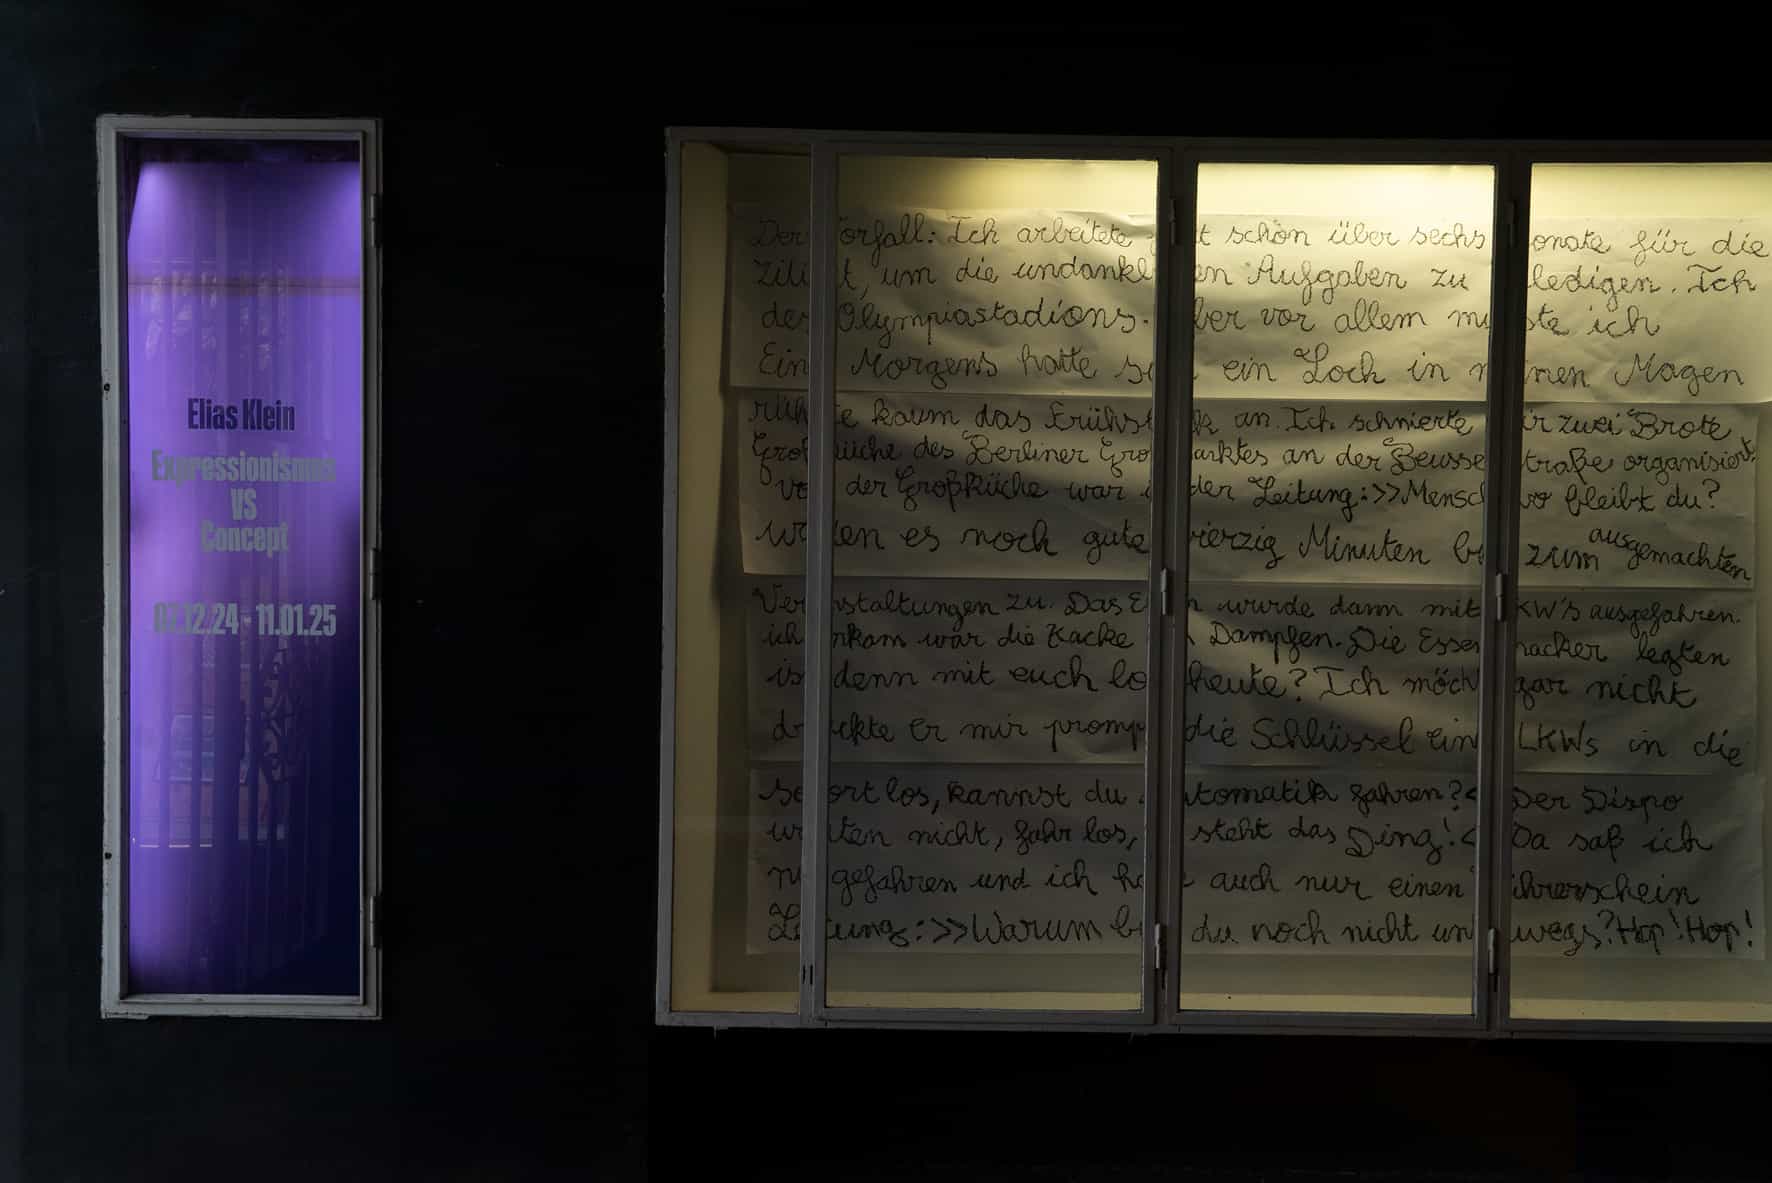 Elias Klein
Expressionismus
VS
Concept
07.12.24 - 11.01.25
Der Vorfall: Ich arbeitete schön über sechs Monate für die
um die undankbaren Aufgaben zu erledigen. Ich
des Olympiastadions. Aber vor allem musste ich
Eines Morgens hatte ein Loch in meinen Magen
rührte kaum das Frühstück an. Ich schmierte mir zwei Brote
Großküche des Berliner Großmarktes an der Beusselstraße organisiert.
von der Großküche war in der Leitung: >>Mensch wo bleibt du?
es noch gute vierzig Minuten bis zum ausgemachten
Veranstaltungen zu. Das Essen wurde dann mit LKW's ausgefahren.
ich ankam war die Kacke am Dampfen. Die Essenpacker legten
ist denn mit euch los heute? Ich möchte gar nicht
drückte er mir prompt die Schlüssel eines LKWs in die
sofort los, kannst du Automatik fahren?< Der Dispo
nicht, fahr los, da steht das Ding!< Da saß ich
gefahren und ich habe auch nur einen Führerschein
Leitung: >>Warum bist du noch nicht unterwegs? Hop! Hop!